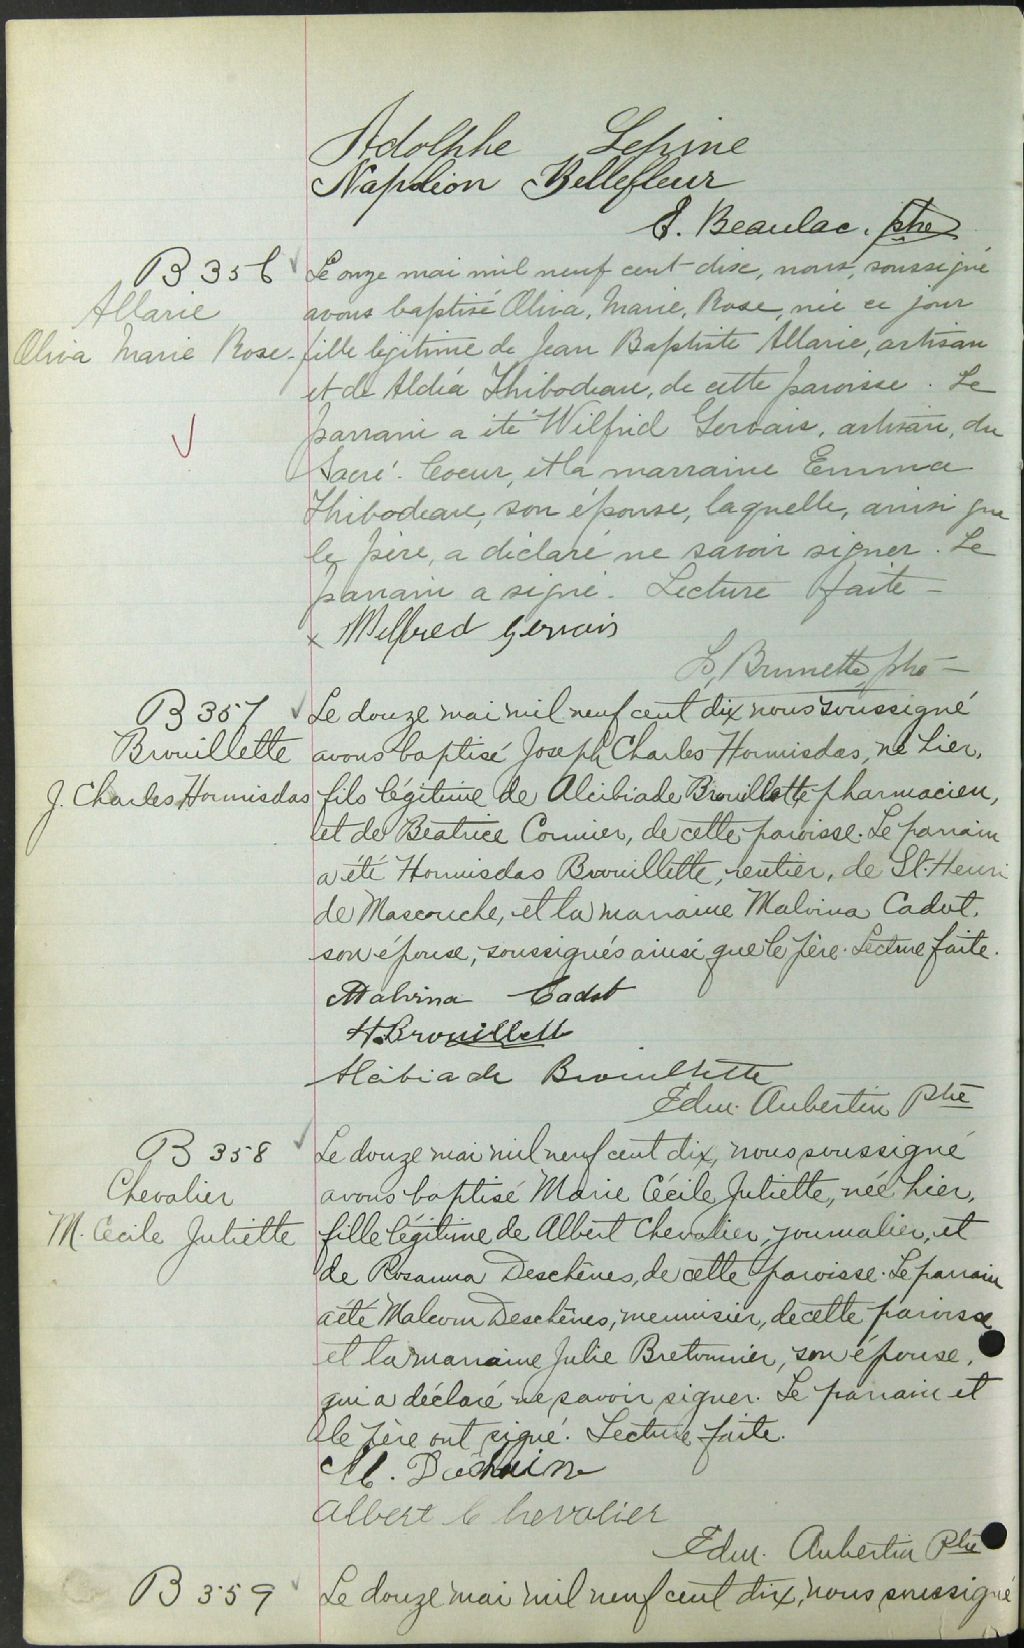 Adolphe Lepine
Napoléon Bellefleur
E. Beaulac, ptre
B 356
Allarie
Oliva Marie Rose
Le onze mai mil neuf cent dix, nous, soussigné
avons baptisé Oliva, Marie, Rose, née ce jour
fille légitime de Jean Baptiste Allarie, artisan
et de Aldéa Thibodeau, de cette paroisse. Le
parrain a été Wilfrid Gervais, artisan, du
Sacré-Coeur, et la marraine Emma
Thibodeau, son épouse, laquelle, ainsi que
le père, a déclaré ne savoir signer. Le
parrain a signé. Lecture faite -
x Wilfred Gervais
L. Brunette, ptre -
B 357
Brouillette
J. Charles Hormisdas
Le douze mai mil neuf cent dix nous soussigné
avons baptisé Joseph Charles Hormisdas, né hier,
fils légitime de Alcibiade Brouillette pharmacien,
et de Beatrice Cormier, de cette paroisse. Le parrain
a été Hormisdas Brouillette, rentier, de St. Henri
de Mascouche, et la marraine Malvina Cadot,
son épouse, soussignés ainsi que le père. Lecture faite.
Malvina Cadot
H. Brouillett
Alcibiade Brouillette
Edm. Aubertin Ptre
B 358
Chevalier
M. Cécile Juliette
Le douze mai mil neuf cent dix, nous soussigné
avons baptisé Marie Cécile Juliette, née hier,
fille légitime de Albert Chevalier, journalier, et
de Rosanna Deschênes, de cette paroisse. Le parrain
a été Malcom Deschênes, menuisier, de cette paroisse
et la marraine Julie Bretonnier, son épouse,
qui a déclaré ne savoir signer. Le parrain et
le père ont signé. Lecture faite.
M.
Albert Chevalier
Edm. Aubertin Ptre
B 359
Le douze mai mil neuf cent dix, nous soussigné